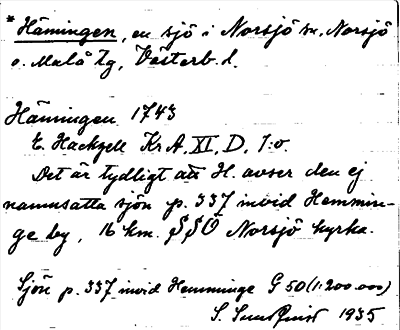 * Häningen, en sjö i Norsjö sn, Norsjö
o. Malå tg, Västerb. l.
Häningen 1743
E. Hackzell KrA, XI, D, 7:o.
Det är tydligt att H. avser den ej
namnsatta sjön p. 337 invid Hemmin-
ge by, 16 km. SSÖ Norsjö kyrka.
Sjön p. 337 invid Hemminge G 50 (1:200.000)
S. 1935